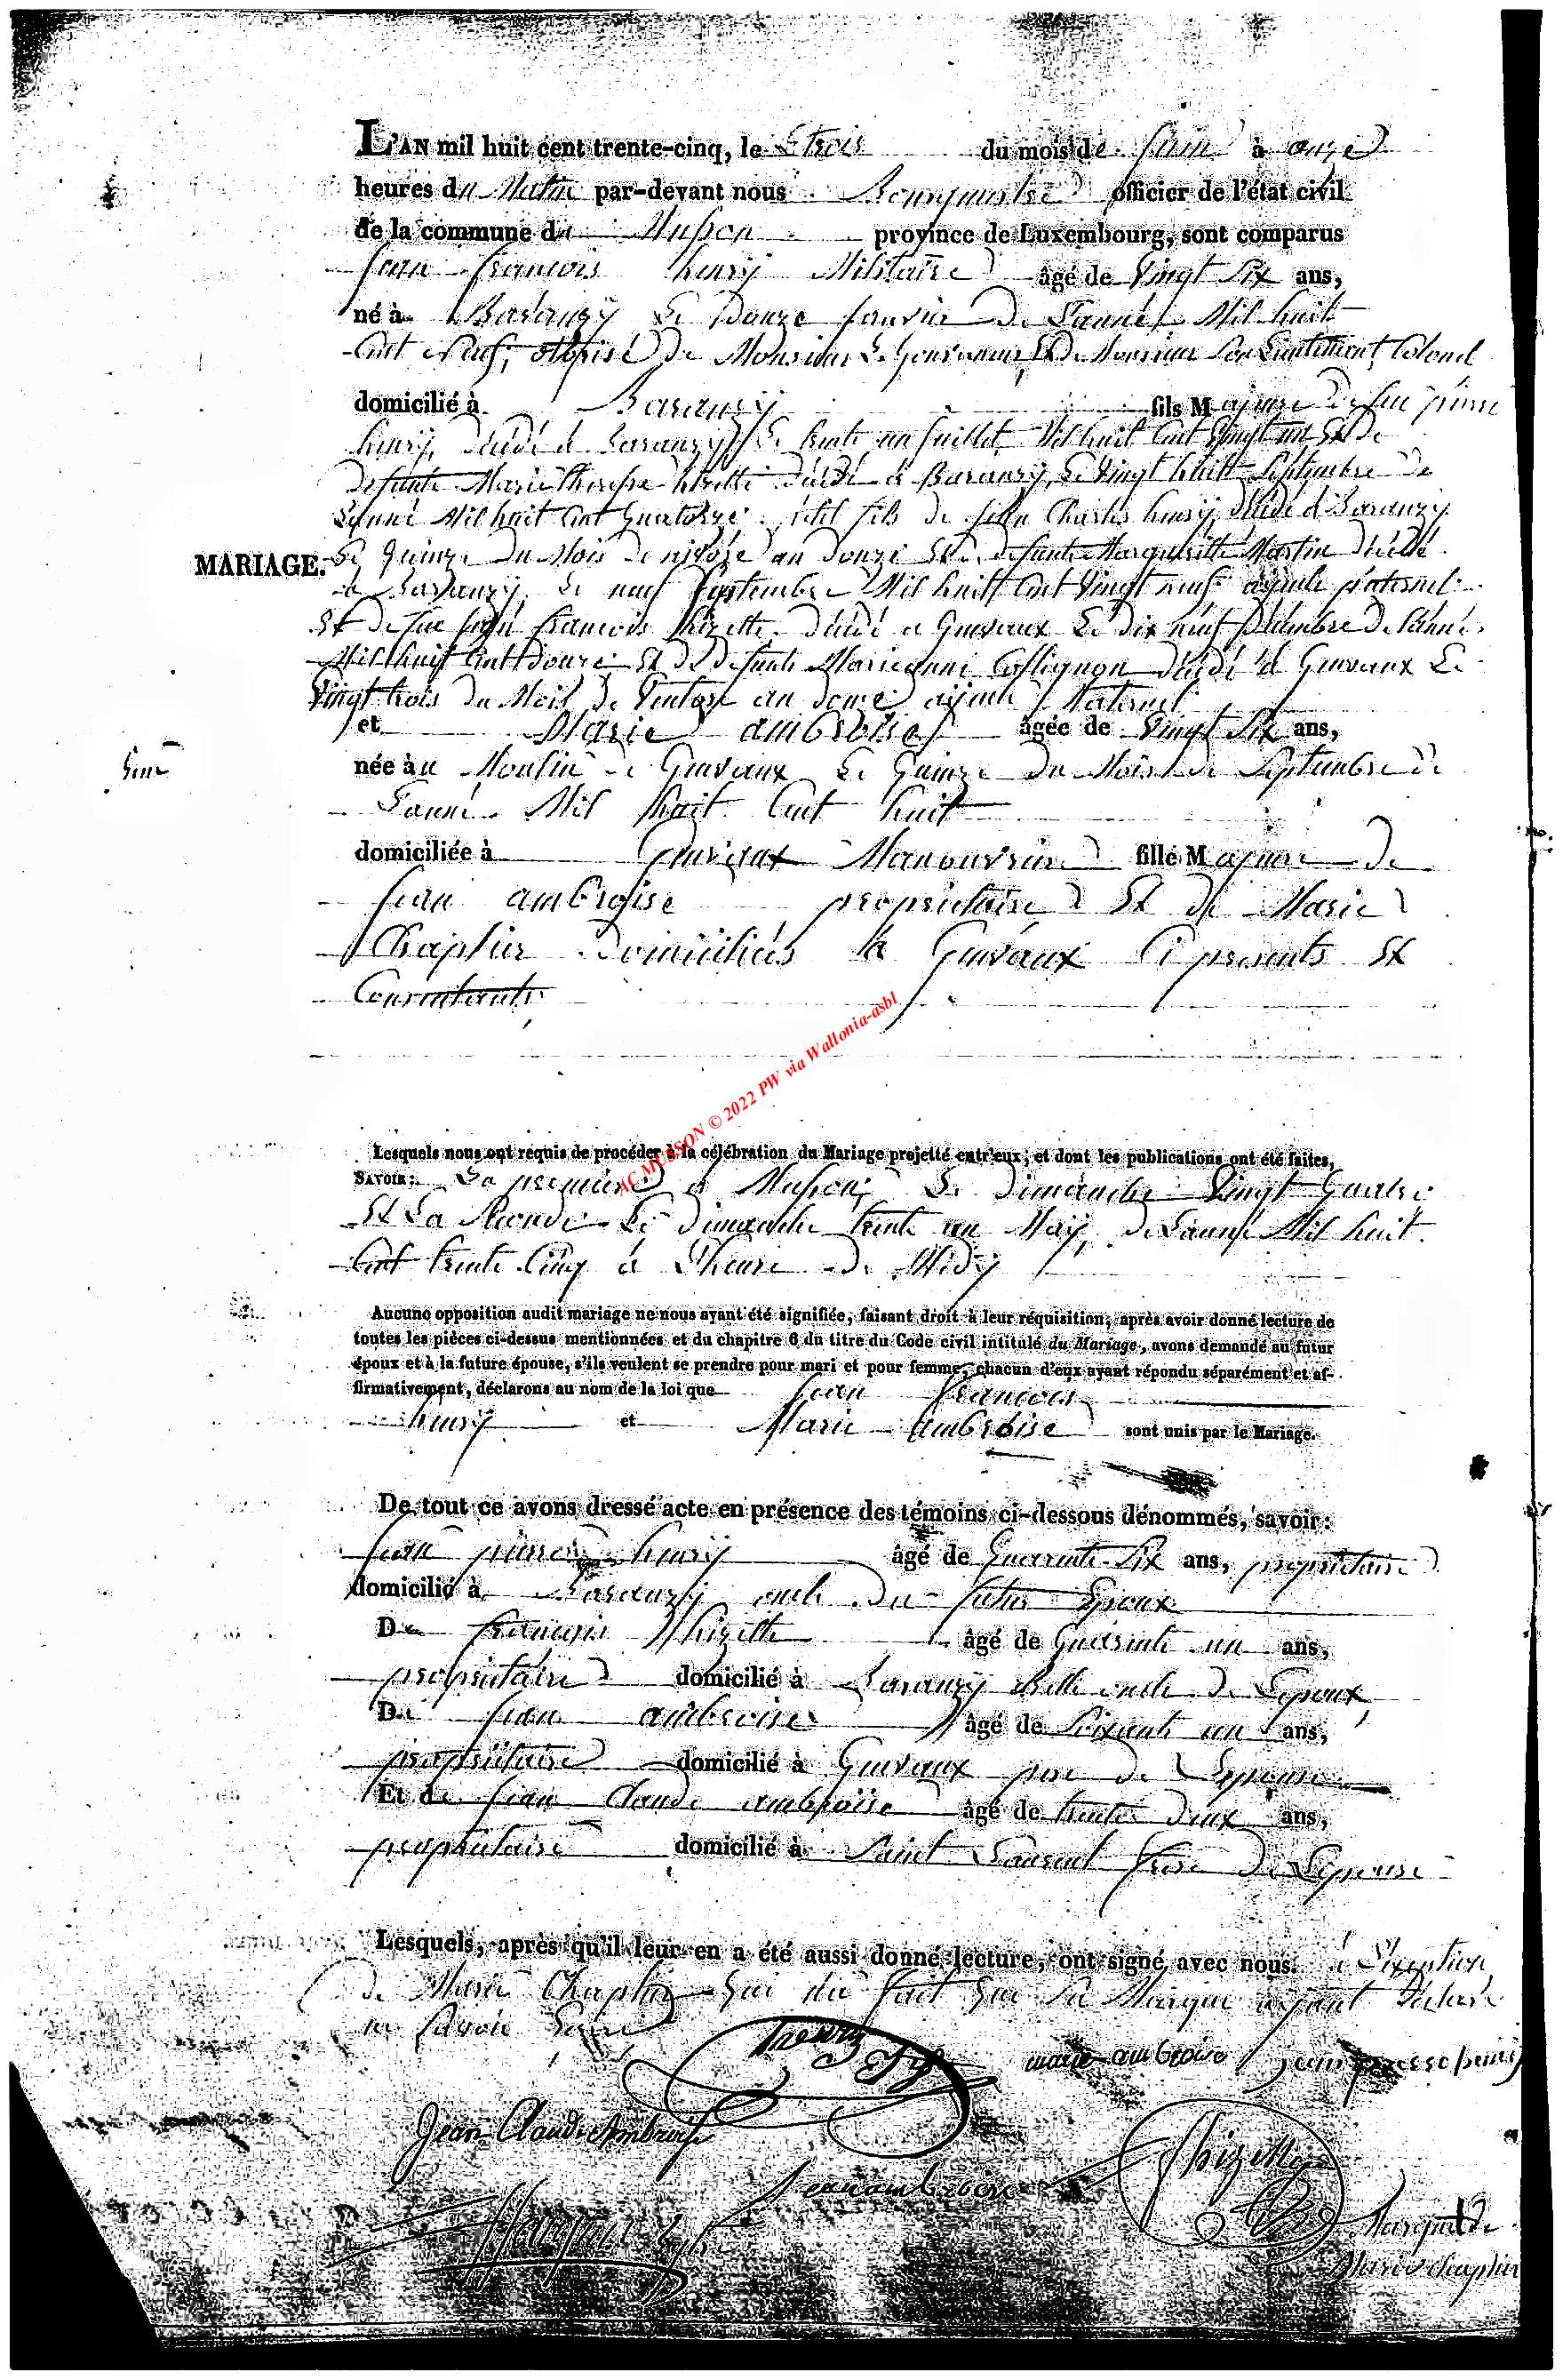 L'AN mil huit cent trente-cinq, le trois du mois de juin à onze
heures du Matin par-devant nous Bourgmestre officier de l'état civil
de la commune de Musson province de Luxembourg, sont comparus
Jean francois henry Militaire âgé de Vingt Six ans,
né à Baranzy Le Douze janvier De L'année Mil huit
Cent Neuf, de Monsieur Le Gouverneur, Et De Monsieur Son Lieutenant Colonel
domicilié à Baranzy fils Majeur De feu pierre
henry, décédé à Baranzy Le trente un juillet Mil huit Cent Vingt un Et De
Defunte Marie therese thizette décédé à Baranzy, Le Vingt huitt Septembre De
L'année Mil huit Cent Quatorze, petit fils de feu Charles henry, décédé à Baranzy
MARIAGE. Le Quinze Du Mois De nivose an Douze Et De defunte Margueritte Martin décédé
à Baranzy, Le neuf Septembre Mil huitt Cent Vingt neuf ayeule paternel
Et De feu jean francois thizette, décédé à Guevaux Le Dix neuf De L'année
Mil huit Cent Douze Et De Defunte Marieanne Collignon décédé à Guevaux Le
Vingt trois Du Mois De Ventose an Douze ayeule Maternel
et Marie ambroise âgée de Vingt Six ans,
née au Moulin de Guevaux Le Quinze Du Mois de Septembre de
L'année Mil huit Cent huit
domiciliée à Guevaux Manouvriere fille Majeure De
jean ambroise propriétaire Et de Marie
Chaplier Domiciliés à Guevaux Ci presents Et
Consentants
AC MUSSON © 2022 PW via Wallonia-asbl
Lesquels nous ont requis de procéder à la célébration du Mariage projetté entr'eux; et dont les publications ont été faites,
SAVOIR: La premiere à Musson, Le Dimanche Vingt Quatre
Et La Seconde Le Dimanche trente un May, De L'année Mil huit
Cent trente Cinq à L'heure De Midy
Aucune opposition audit mariage ne nous ayant été signifiée, faisant droit à leur réquisition, après avoir donné lecture de
toutes les pièces ci-dessus mentionnées et du chapitre 6 du titre du Code civil intitulé du Mariage, avons demandé au futur
époux et à la future épouse, s'ils veulent se prendre pour mari et pour femme, chacun d'eux ayant répondu séparément et af-
firmativement, déclarons au nom de la loi que jean francois
henry et Marie ambroise sont unis par le Mariage.
De tout ce avons dressé acte en présence des témoins ci-dessous dénommés, savoir:
jean pierre henry âgé de Quarente Six ans, propriétaire
domicilié à Baranzy oncle Du futur Epoux
De francois thizette âgé de Quarente un ans,
propriétaire domicilié à Baranzy oncle De L'epoux,
De jean ambroise âgé de Soixante un ans,
propriétaire domicilié à Guevaux pere de L'epouse
Et de jean Claude ambroise âgé de trente Deux ans,
propriétaire domicilié à Saint Laurent frere De L'epouse
Lesquels, après qu'il leur en a été aussi donné lecture, ont signé avec nous. à L'exeption
de Marie Chaplier Qui n'a fait Que Sa Marque ayant Déclaré
ne Savoir
henry
marie ambroise jean pierre henry
Jean Claude Ambroise
thizette
jean ambroise
Marque de
Marie chaplier